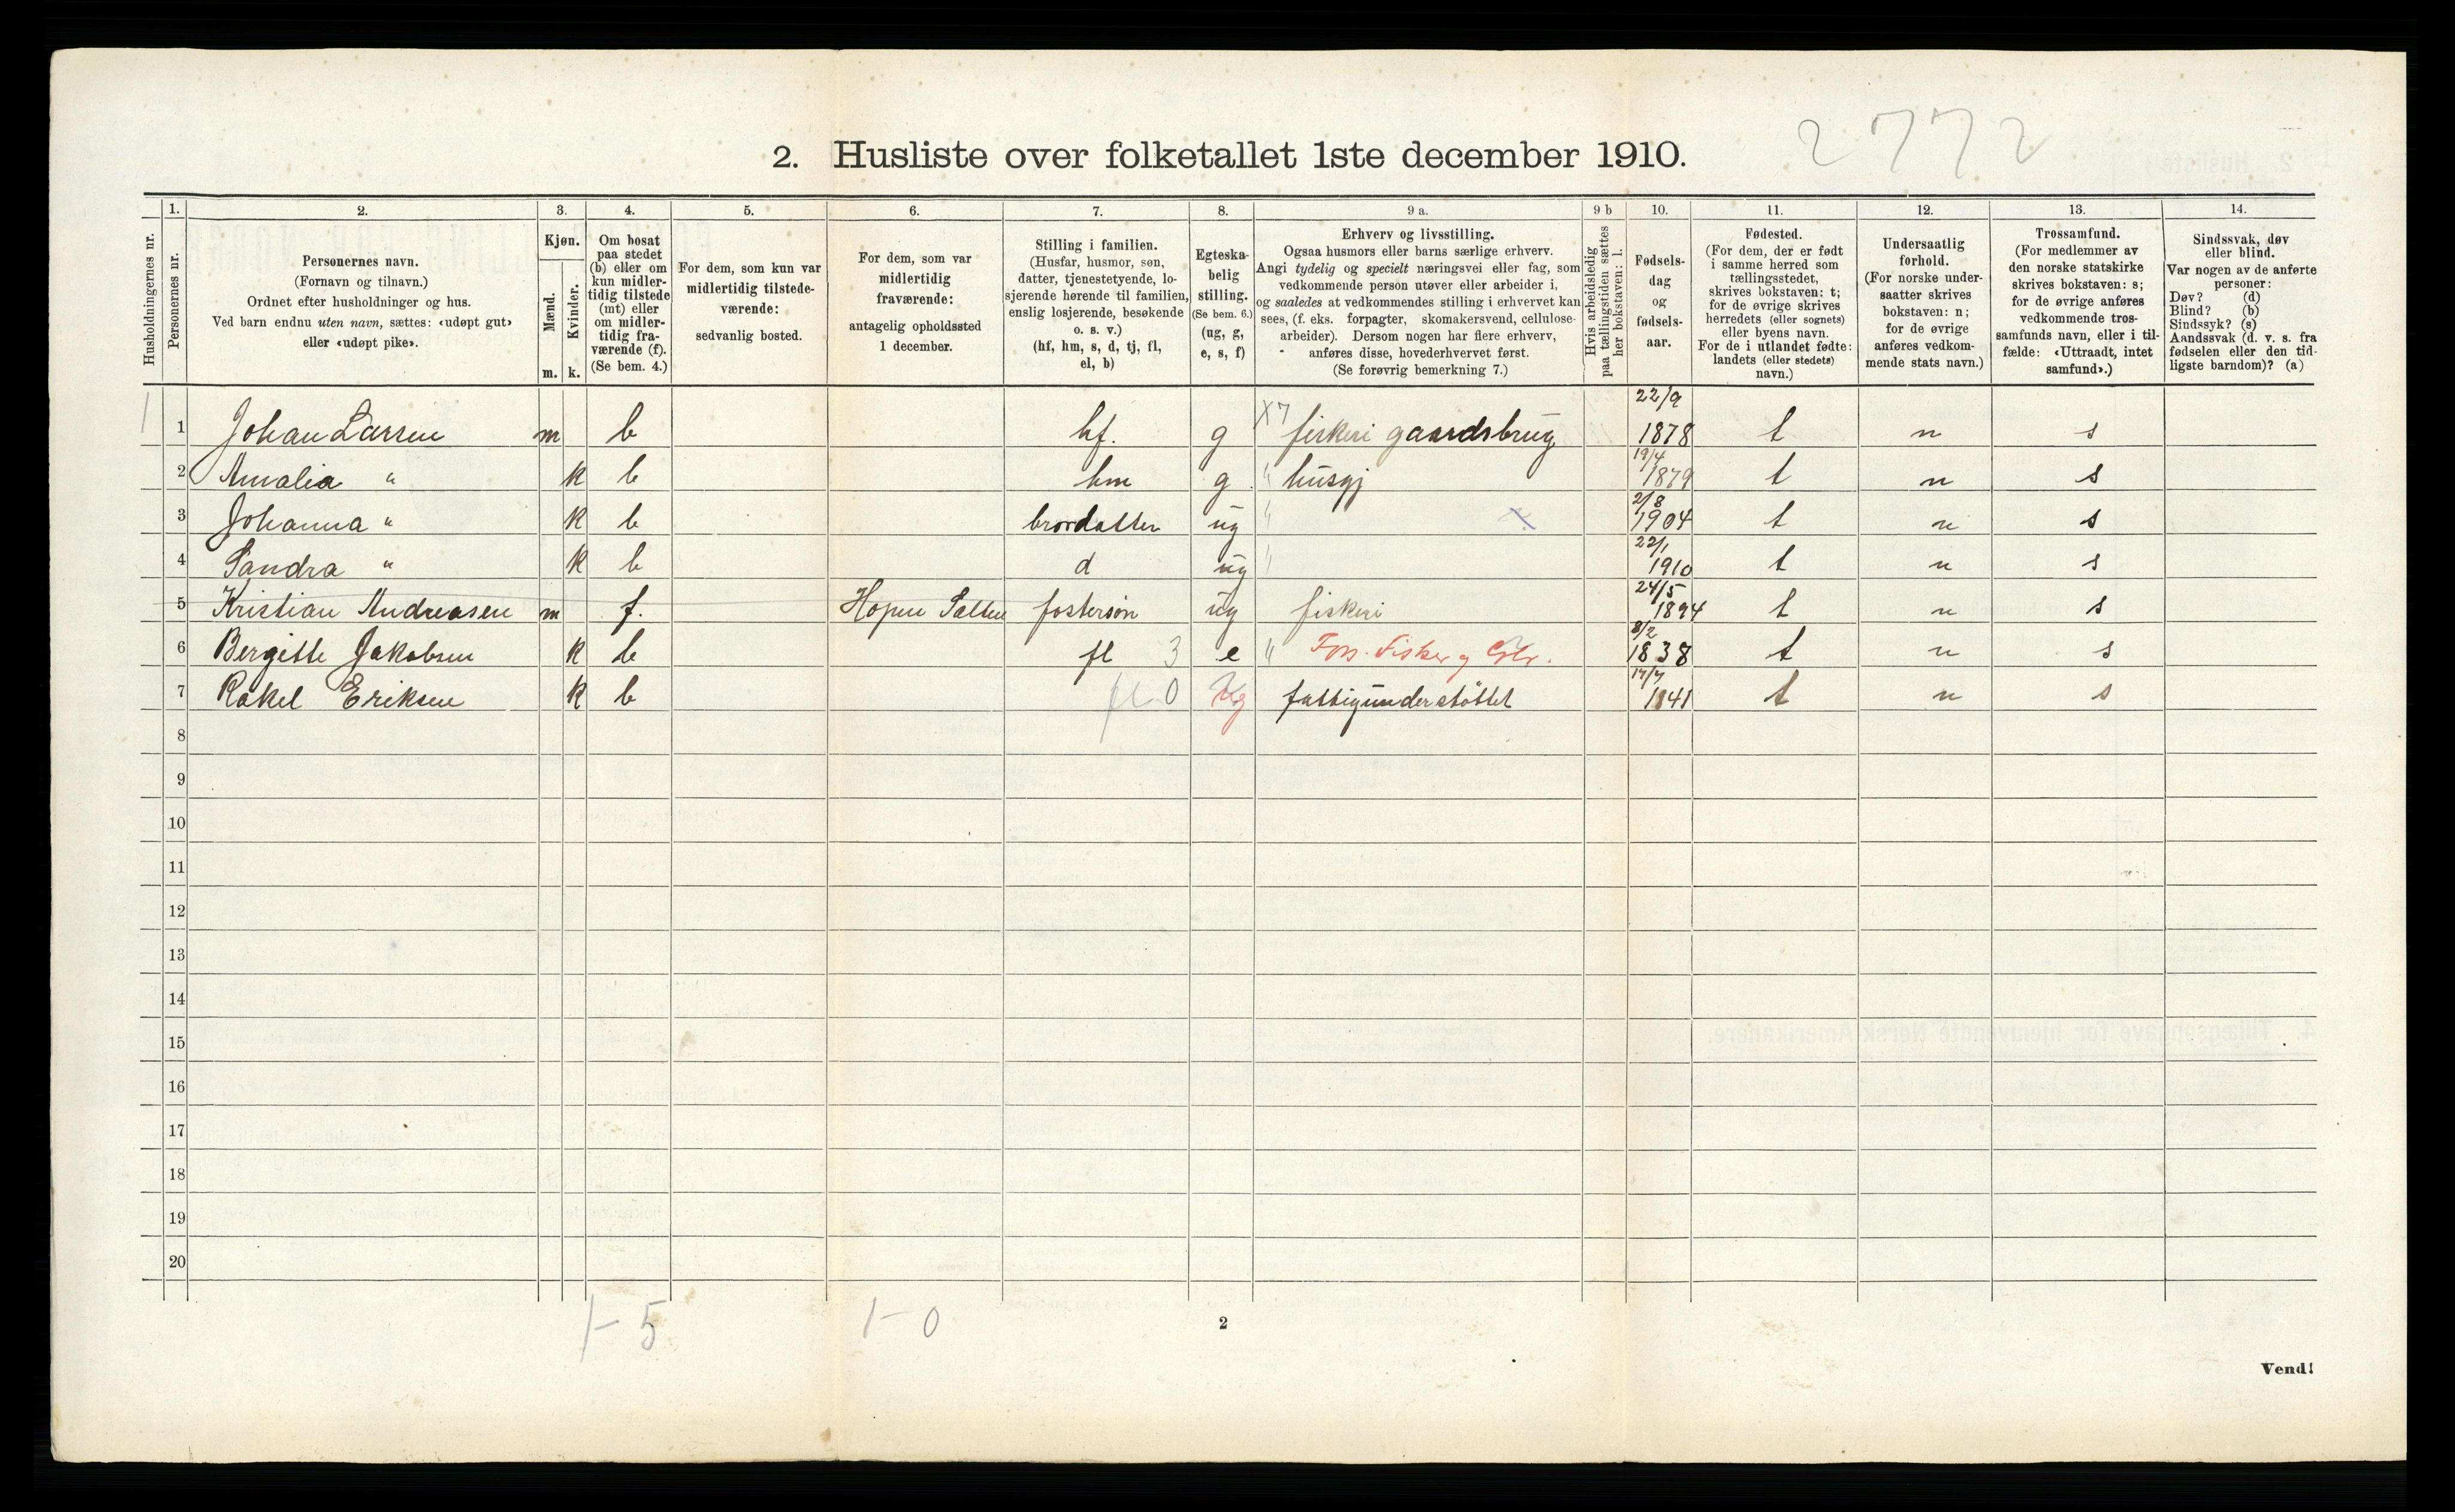 2. Husliste over folketallet 1ste december 1910.
2772
Husholdningernes nr.
1.
Personernes nr.
2.
Personernes navn.
(Fornavn og tilnavn.)
Ordnet efter husholdninger og hus.
Ved barn endnu uten navn, sættes: «udøpt gut»
eller «udøpt pike».
3.
Kjøn.
Mænd.
Kvinder.
m. k.
4.
Om bosat
paa stedet
(b) eller om
kun midler-
tidig tilstede
(mt) eller
om midler-
tidig fra-
værende (f).
(Se bem. 4.)
5.
For dem, som kun var
midlertidig tilstede-
værende:
sedvanlig bosted.
6.
For dem, som var
midlertidig
fraværende:
antagelig opholdssted
1 december.
7.
Stilling i familien.
(Husfar, husmor, søn,
datter, tjenestetyende, lo-
sjerende hørende til familien,
enslig losjerende, besøkende
o. s. v.)
(hf, hm, s, d, tj, fl,
el, b)
8.
Egteska-
belig
stilling.
(Se bem. 6.)
(ug, g,
e, s, f)
9 a.
Erhverv og livsstilling.
Ogsaa husmors eller barns særlige erhverv.
Angi tydelig og specielt næringsvei eller fag, som
vedkommende person utøver eller arbeider i,
og saaledes at vedkommendes stilling i erhvervet kan
sees, (f. eks. forpagter, skomakersvend, cellulose-
arbeider). Dersom nogen har flere erhverv,
anføres disse, hovederhvervet først.
(Se forøvrig bemerkning 7.)
9 b
Hvis arbeidsledig
paa tællingstiden sættes
her bokstaven: l.
10.
Fødsels-
dag
og
fødsels-
aar.
11.
Fødested.
(For dem, der er født
i samme herred som
tællingsstedet,
skrives bokstaven: t;
for de øvrige skrives
herredets (eller sognets)
eller byens navn.
For de i utlandet fødte:
landets (eller stedets)
navn.)
12.
Undersaatlig
forhold.
(For norske under-
saatter skrives
bokstaven: n;
for de øvrige
anføres vedkom-
mende stats navn.)
13.
Trossamfund.
(For medlemmer av
den norske statskirke
skrives bokstaven: s;
for de øvrige anføres
vedkommende tros-
samfunds navn, eller i til-
fælde: «Uttraadt, intet
samfund».)
14.
Sindssvak, døv
eller blind.
Var nogen av de anførte
personer:
Døv? (d)
Blind? (b)
Sindssyk? (s)
Aandssvak (d. v. s. fra
fødselen eller den tid-
ligste barndom)? (a)
1 1 Johan Larsen m b hf. g X7 fiskeri gaardsbrug 22/9 1878 t n s
2 Amalia " k b hm g " husgj 19/4 1879 t n s
3 Johanna " k b brordatter ug " x 2/8 1904 t n s
4 Sandra " k b d ug " 22/1 1910 t n s
5 Kristian Andreasen m f. Hopen Salten fostersøn ug fiskeri 24/5 1894 t n s
6 Bergitte Jakobsen k b fl 3 e " Fors. Fisker g 8/2 1838 t n s
7 Rakel Eriksen k b fl 0 ug fattigunderstøttet 17/7 1841 t n s
8
9
10
11
12
13
14
15
16
17
18
19
20
1-5 1-0
2
Vend!